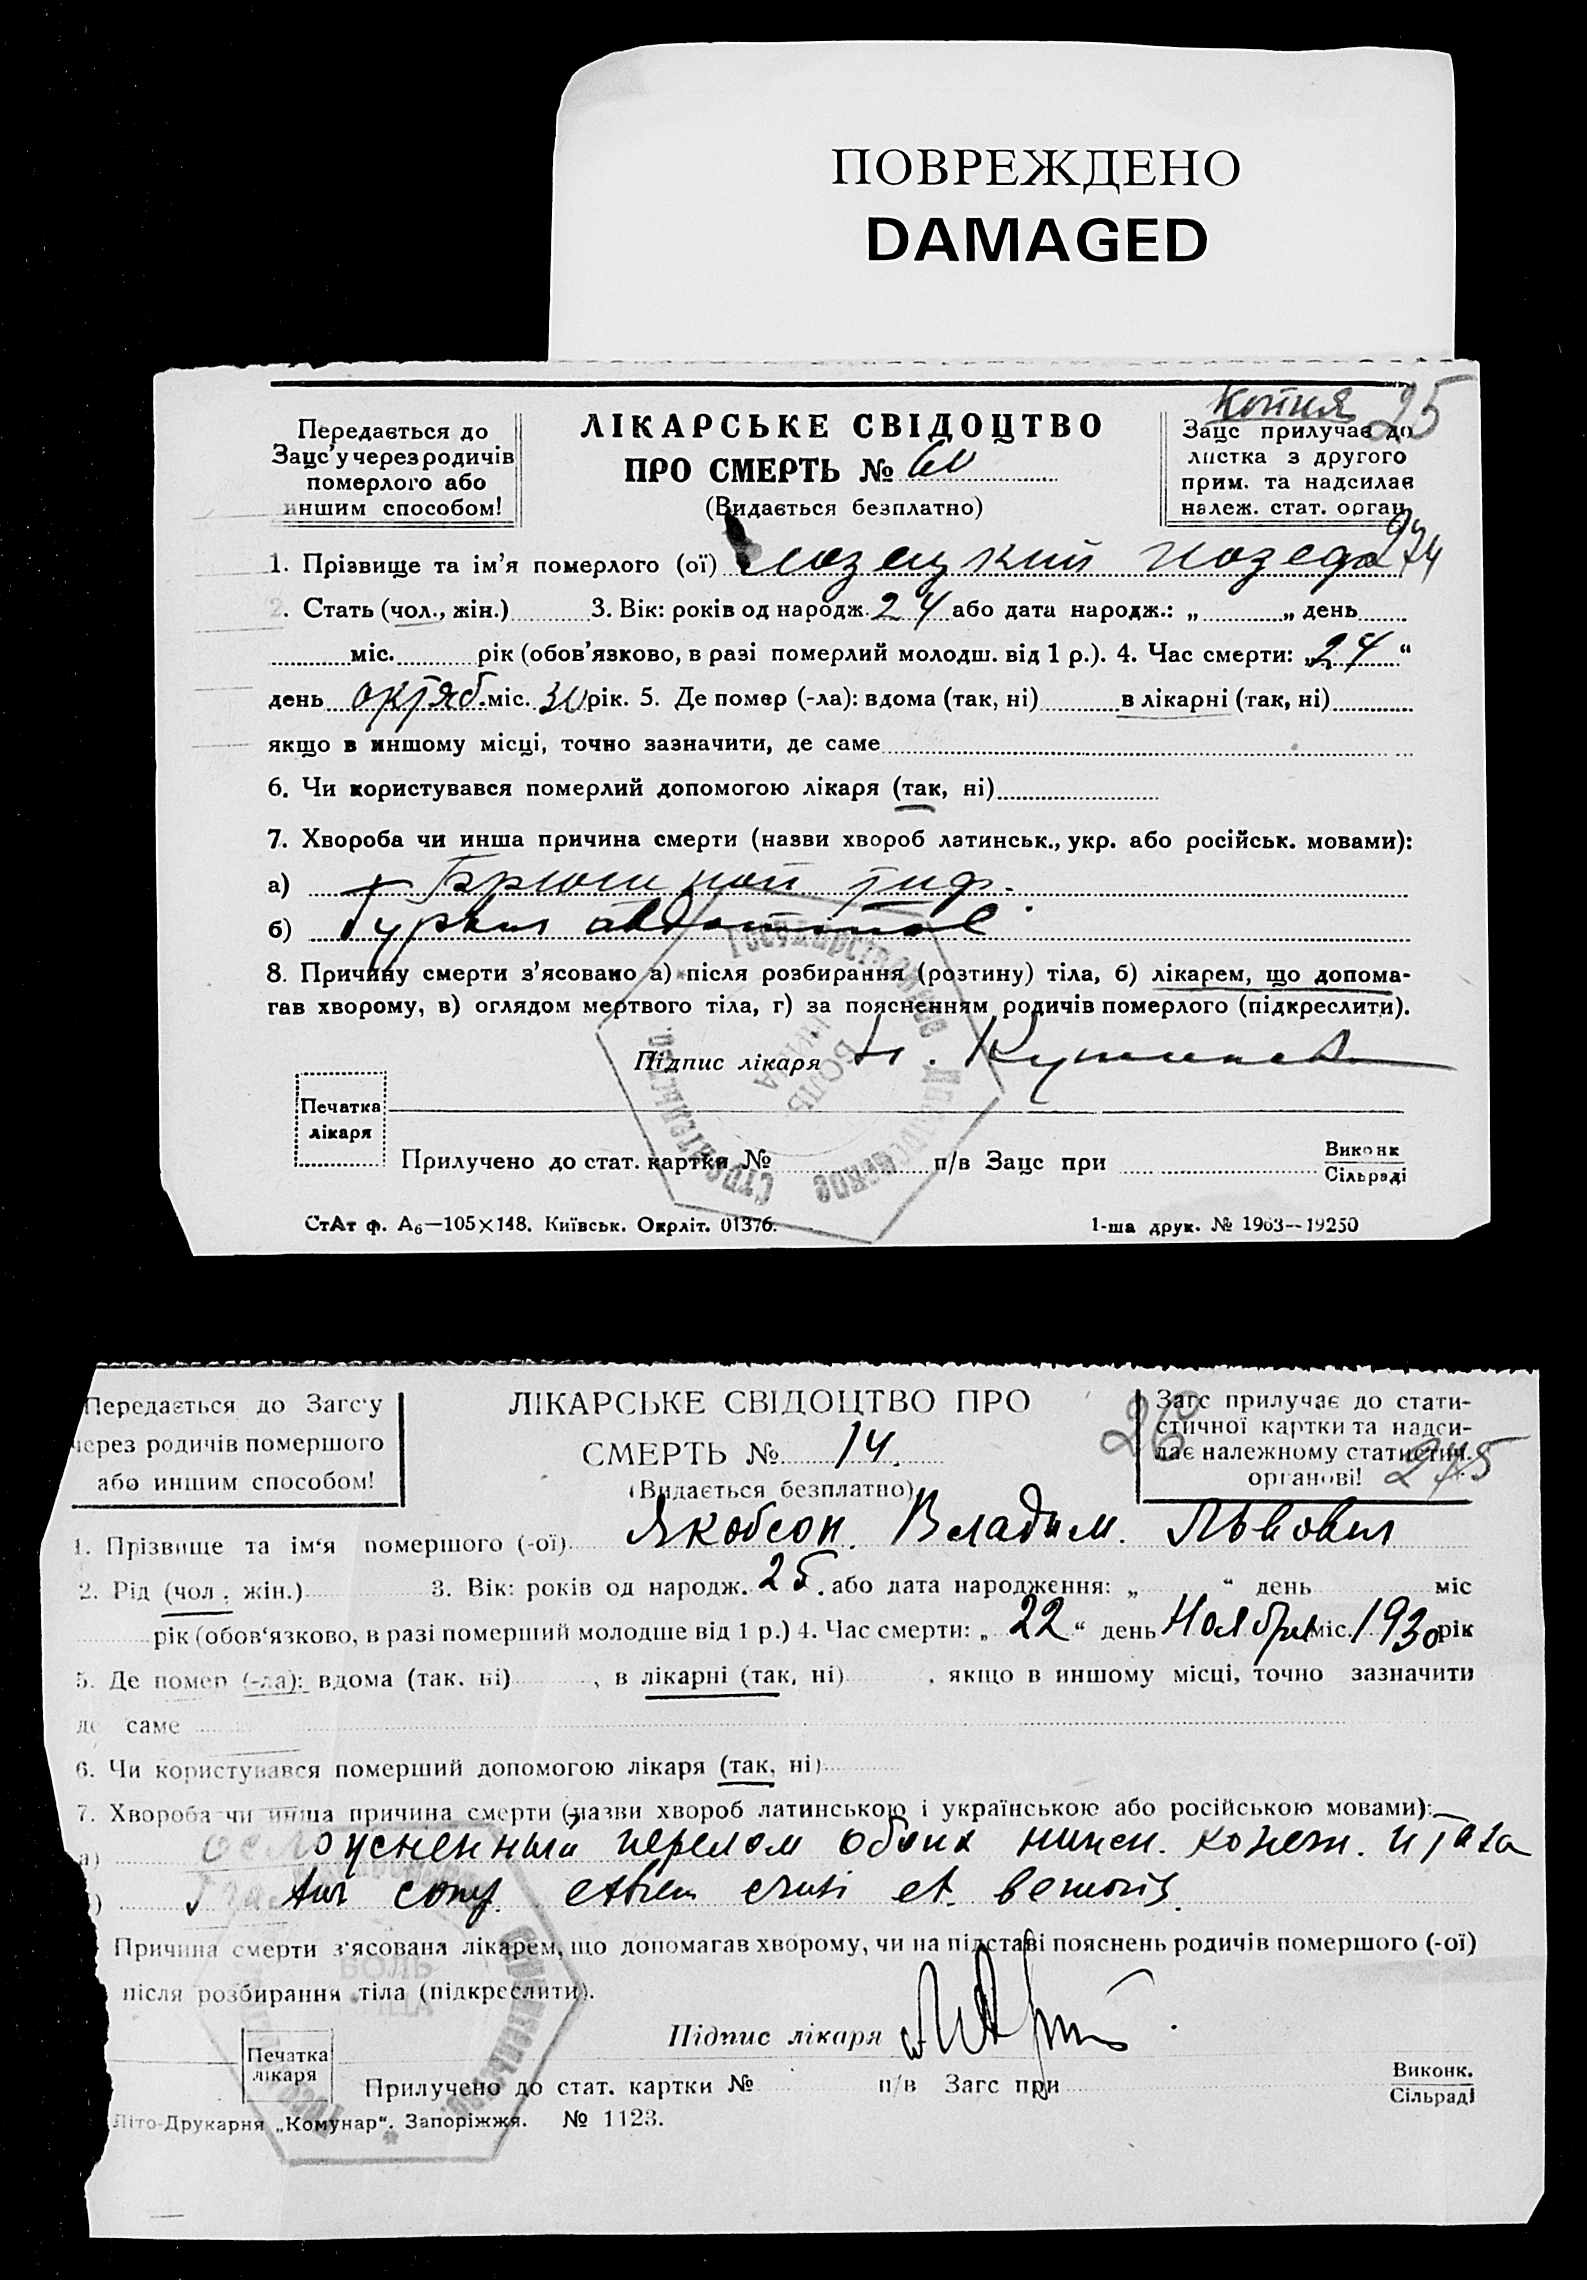 ПОВРЕЖДЕНО
DAMAGED
Копия 25
Передається до
Зацс'у через родичів
померлого або
иншим способом!
ЛІКАРСЬКЕ СВІДОЦТВО
ПРО СМЕРТЬ № 60
(Видається безплатно)
Зацс прилучає до
листка з другого
прим. та надсилає
належ. стат. орган.
974
1. Прізвище та ім'я померлого (ої)
2. Стать (чол., жін.) 3. Вік: років од народж. 24 або дата народж.: „ „ день
міс. рік (обов'язково, в разі померлий молодш. від 1 р.). 4. Час смерти: „24“
день октяб. міс. 30 рік. 5. Де помер (-ла): вдома (так, ні) в лікарні (так, ні)
якщо в иншому місці, точно зазначити, де саме
6. Чи користувався померлий допомогою лікаря (так, ні)
7. Хвороба чи инша причина смерти (назви хвороб латинськ., укр. або російськ. мовами):
а) Брюшной тиф.
б) abdominal
8. Причину смерти з'ясовано а) після розбирання (розтину) тіла, б) лікарем, що допома-
гав хворому, в) оглядом мертвого тіла, г) за поясненням родичів померлого (підкреслити).
Підпис лікаря
Печатка
лікаря
Прилучено до стат. картки № п/в Зацс при Виконк
Сільраді
СтАт ф. А6—105×148. Київськ. Окрліт. 01376. 1-ша друк. № 1963—19250
Передається до Загс'у
через родичів помершого
або иншим способом!
ЛІКАРСЬКЕ СВІДОЦТВО ПРО
СМЕРТЬ № 14.
(Видається безплатно)
26
Загс прилучає до стати-
стичної картки та надси-
лає належному статистич.
органові!
275
1. Прізвище та ім'я помершого (-ої) Якобсон. Владим. Львович
2. Рід (чол., жін.) 3. Вік: років од народж. 25. або дата народження: „ “ день міс
рік (обов'язково, в разі померший молодше від 1 р.) 4. Час смерти: „22“ день Ноября міс. 1930 рік
5. Де помер (-ла): вдома (так, ні) , в лікарні (так, ні) , якщо в иншому місці, точно зазначити
де саме
6. Чи користувався померший допомогою лікаря (так, ні)
7. Хвороба чи инша причина смерти (назви хвороб латинською і українською або російською мовами):
а) осложненный перелом обоих нижн. конечн. и таза
Причина смерти з'ясована лікарем, що допомагав хворому, чи на підставі пояснень родичів помершого (-ої)
після розбирання тіла (підкреслити).
Підпис лікаря
Печатка
лікаря
Прилучено до стат. картки № п/в Загс при Виконк.
Сільраді
Літо-Друкарня „Комунар“. Запоріжжя. № 1123.